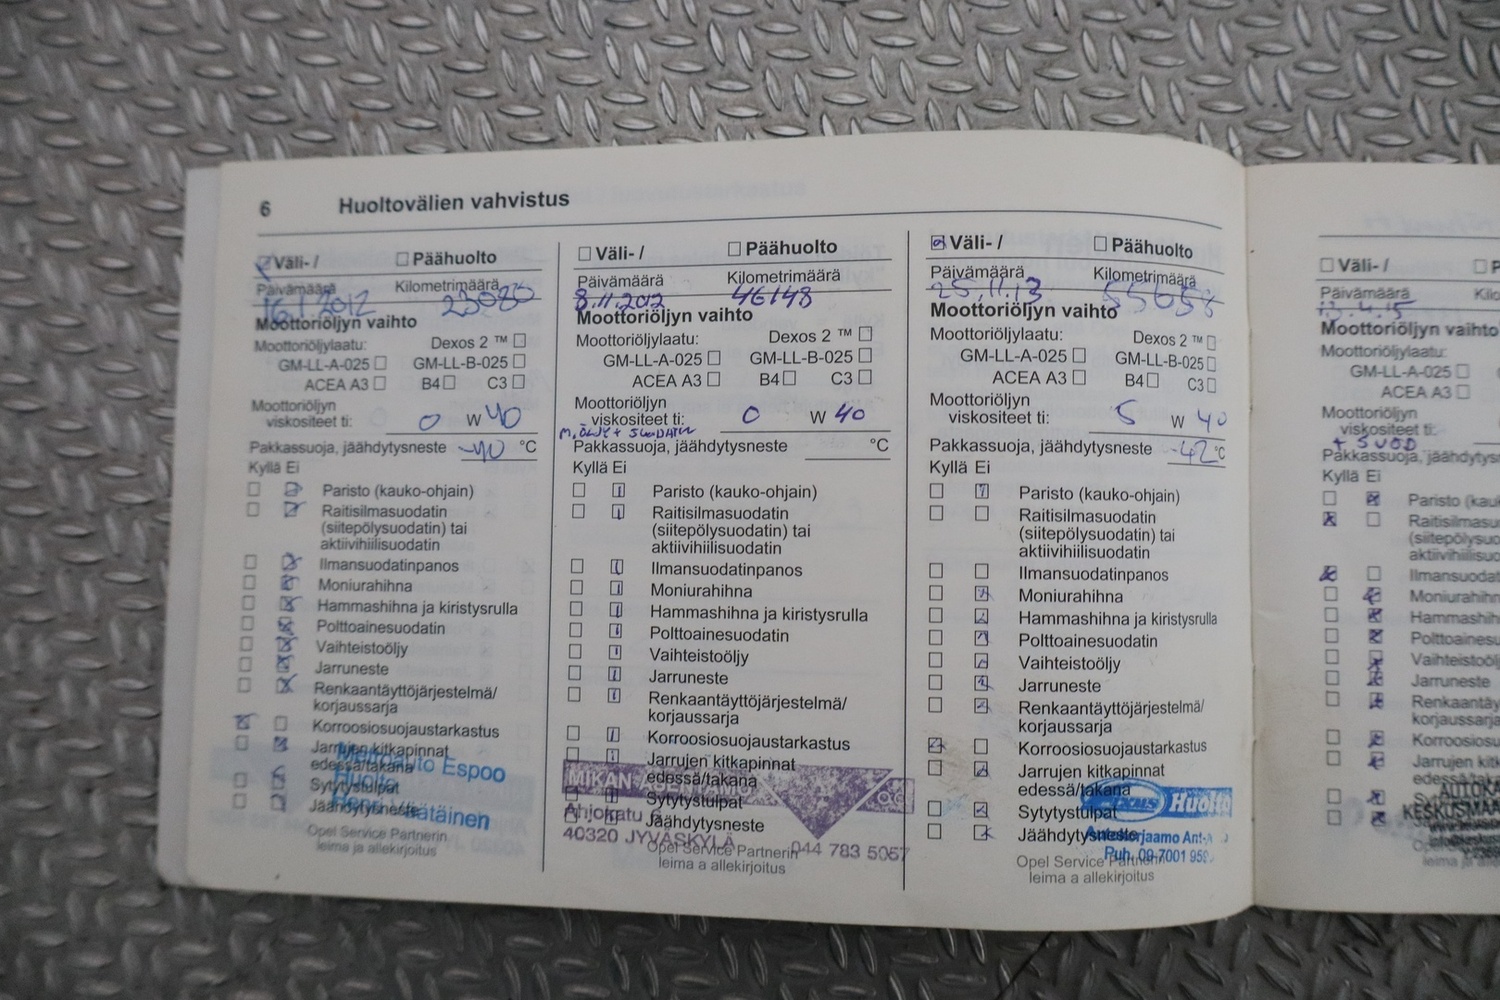 6 Huoltovälien vahvistus
Väli- / Päähuolto
Päivämäärä Kilometrimäärä
16.1.2012 23080
Moottoriöljyn vaihto
Moottoriöljylaatu: Dexos 2 ™
GM-LL-A-025 GM-LL-B-025
ACEA A3 B4 C3
Moottoriöljyn
viskositeet ti: 0 W 40
Pakkassuoja, jäähdytysneste -40 °C
Kyllä Ei
Paristo (kauko-ohjain)
Raitisilmasuodatin
(siitepölysuodatin) tai
aktiivihiilisuodatin
Ilmansuodatinpanos
Moniurahihna
Hammashihna ja kiristysrulla
Polttoainesuodatin
Vaihteistoöljy
Jarruneste
Renkaantäyttöjärjestelmä/
korjaussarja
Korroosiosuojaustarkastus
Jarrujen kitkapinnat
edessä/takana
Sytytystulpat
Jäähdytysneste
Espoo
Huolto
Opel Service Partnerin
leima ja allekirjoitus
Väli- / Päähuolto
Päivämäärä Kilometrimäärä
8.11.2012 46148
Moottoriöljyn vaihto
Moottoriöljylaatu: Dexos 2 ™
GM-LL-A-025 GM-LL-B-025
ACEA A3 B4 C3
Moottoriöljyn
viskositeet ti: 0 W 40
Pakkassuoja, jäähdytysneste °C
Kyllä Ei
Paristo (kauko-ohjain)
Raitisilmasuodatin
(siitepölysuodatin) tai
aktiivihiilisuodatin
Ilmansuodatinpanos
Moniurahihna
Hammashihna ja kiristysrulla
Polttoainesuodatin
Vaihteistoöljy
Jarruneste
Renkaantäyttöjärjestelmä/
korjaussarja
Korroosiosuojaustarkastus
Jarrujen kitkapinnat
edessä/takana
Sytytystulpat
Jäähdytysneste
MIKAN
Ahjokatu
40320 JYVÄSKYLÄ 044 783 5067
Opel Service Partnerin
leima a allekirjoitus
Väli- / Päähuolto
Päivämäärä Kilometrimäärä
25.11.13 55658
Moottoriöljyn vaihto
Moottoriöljylaatu: Dexos 2 ™
GM-LL-A-025 GM-LL-B-025
ACEA A3 B4 C3
Moottoriöljyn
viskositeet ti: 5 W 40
Pakkassuoja, jäähdytysneste -42 °C
Kyllä Ei
Paristo (kauko-ohjain)
Raitisilmasuodatin
(siitepölysuodatin) tai
aktiivihiilisuodatin
Ilmansuodatinpanos
Moniurahihna
Hammashihna ja kiristysrulla
Polttoainesuodatin
Vaihteistoöljy
Jarruneste
Renkaantäyttöjärjestelmä/
korjaussarja
Korroosiosuojaustarkastus
Jarrujen kitkapinnat
edessä/takana
Sytytystulpat
Jäähdytysneste
Huolto
Puh. 09-7001
Opel Service Partnerin
leima a allekirjoitus
Väli- /
Päivämäärä
13.4.15
Moottoriöljyn vaihto
Moottoriöljylaatu:
GM-LL-A-025
ACEA A3
Moottoriöljyn
viskositeet ti:
+ SUOD
Pakkassuoja,
Kyllä Ei
Paristo
Jarruneste